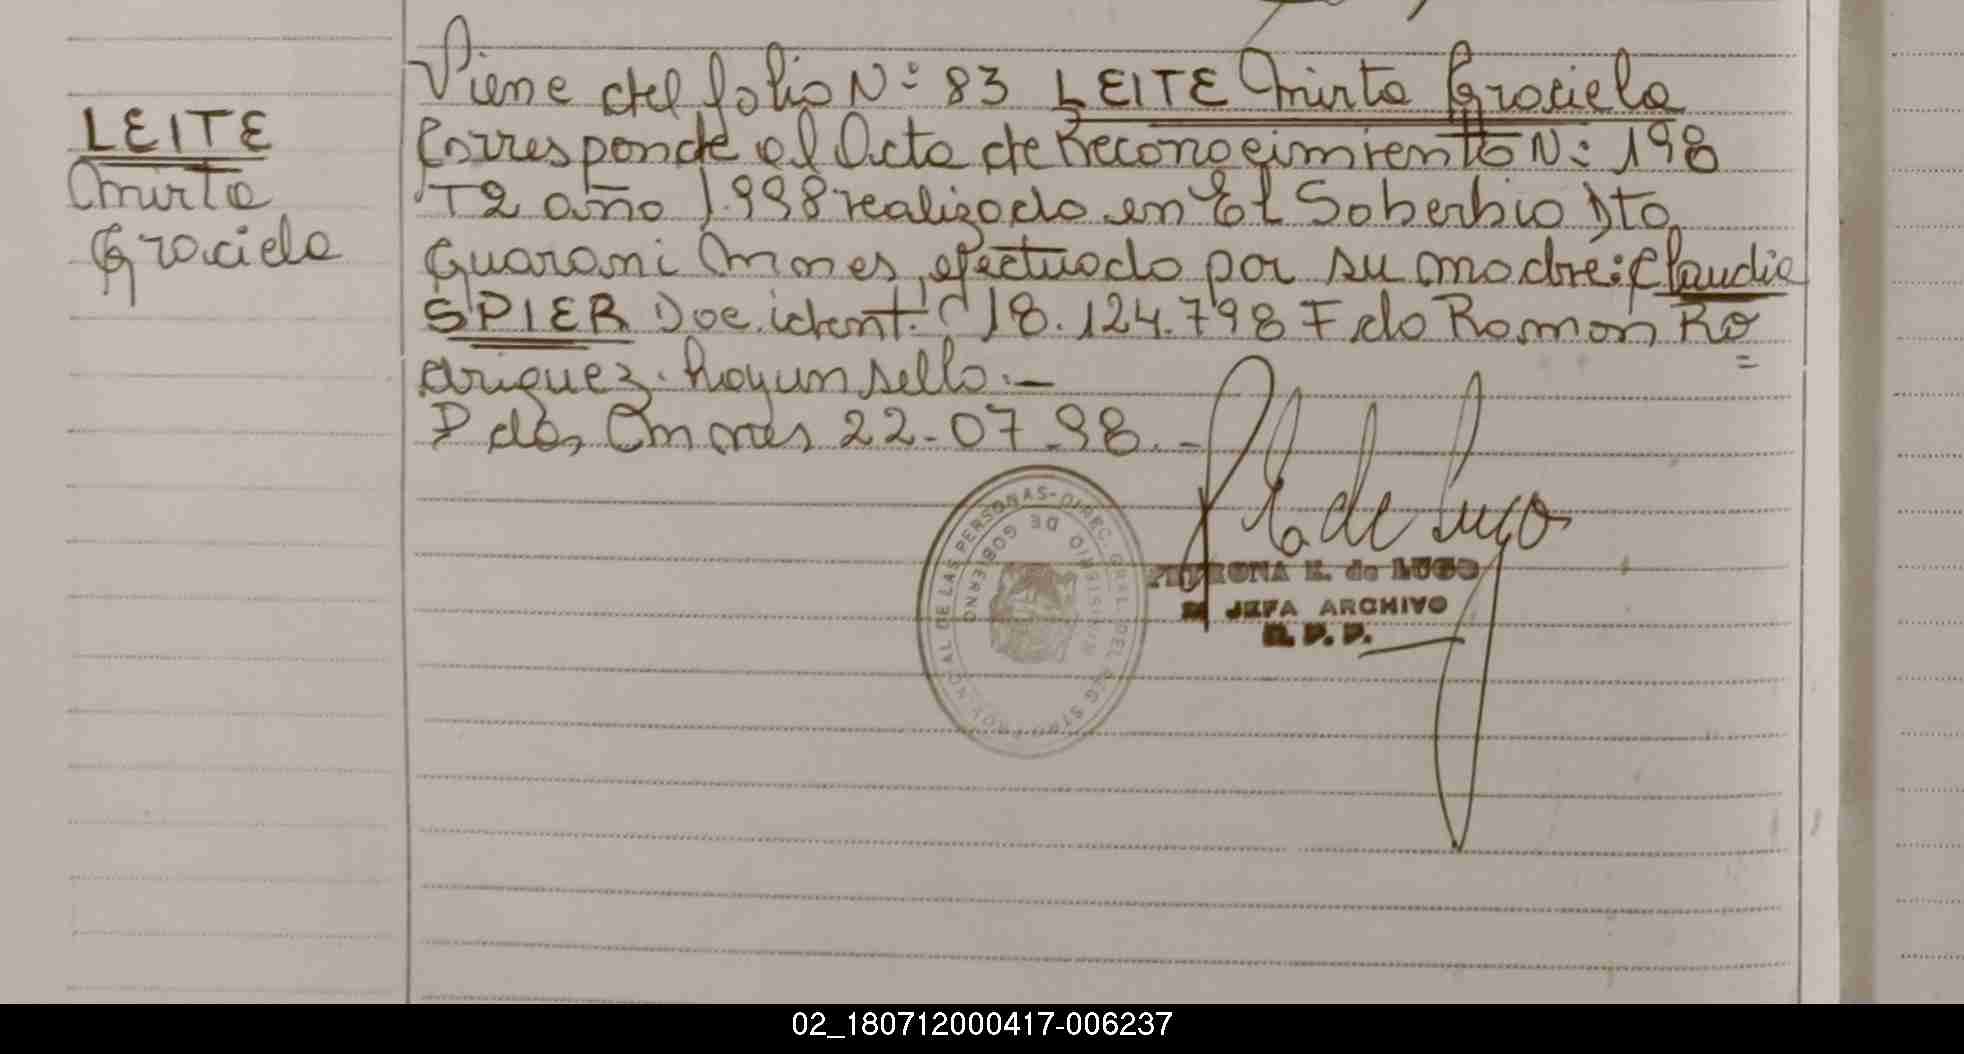 LEITE
Mirta
Graciela
Viene del folio N: 83 LEITE Mirta Graciela
Corresponde al Acta de Reconocimiento N: 198
T2 año 1.998 realizado en El Soberbio Dto
Guarani Mnes, efectuado por su madre: Claudia
SPIER Doc. ident. 18.124.798 Fdo Ramon Ro
driguez. Hay un sello.-
Pdas, Mnes 22-07-98.-
PROVINCIAL DE LAS PERSONAS-DIREC. GRAL. DEL REGISTRO
MINISTERIO DE GOBIERNO
K. de LUGO
JEFA ARCHIVO
R. P. P.
02_180712000417-006237